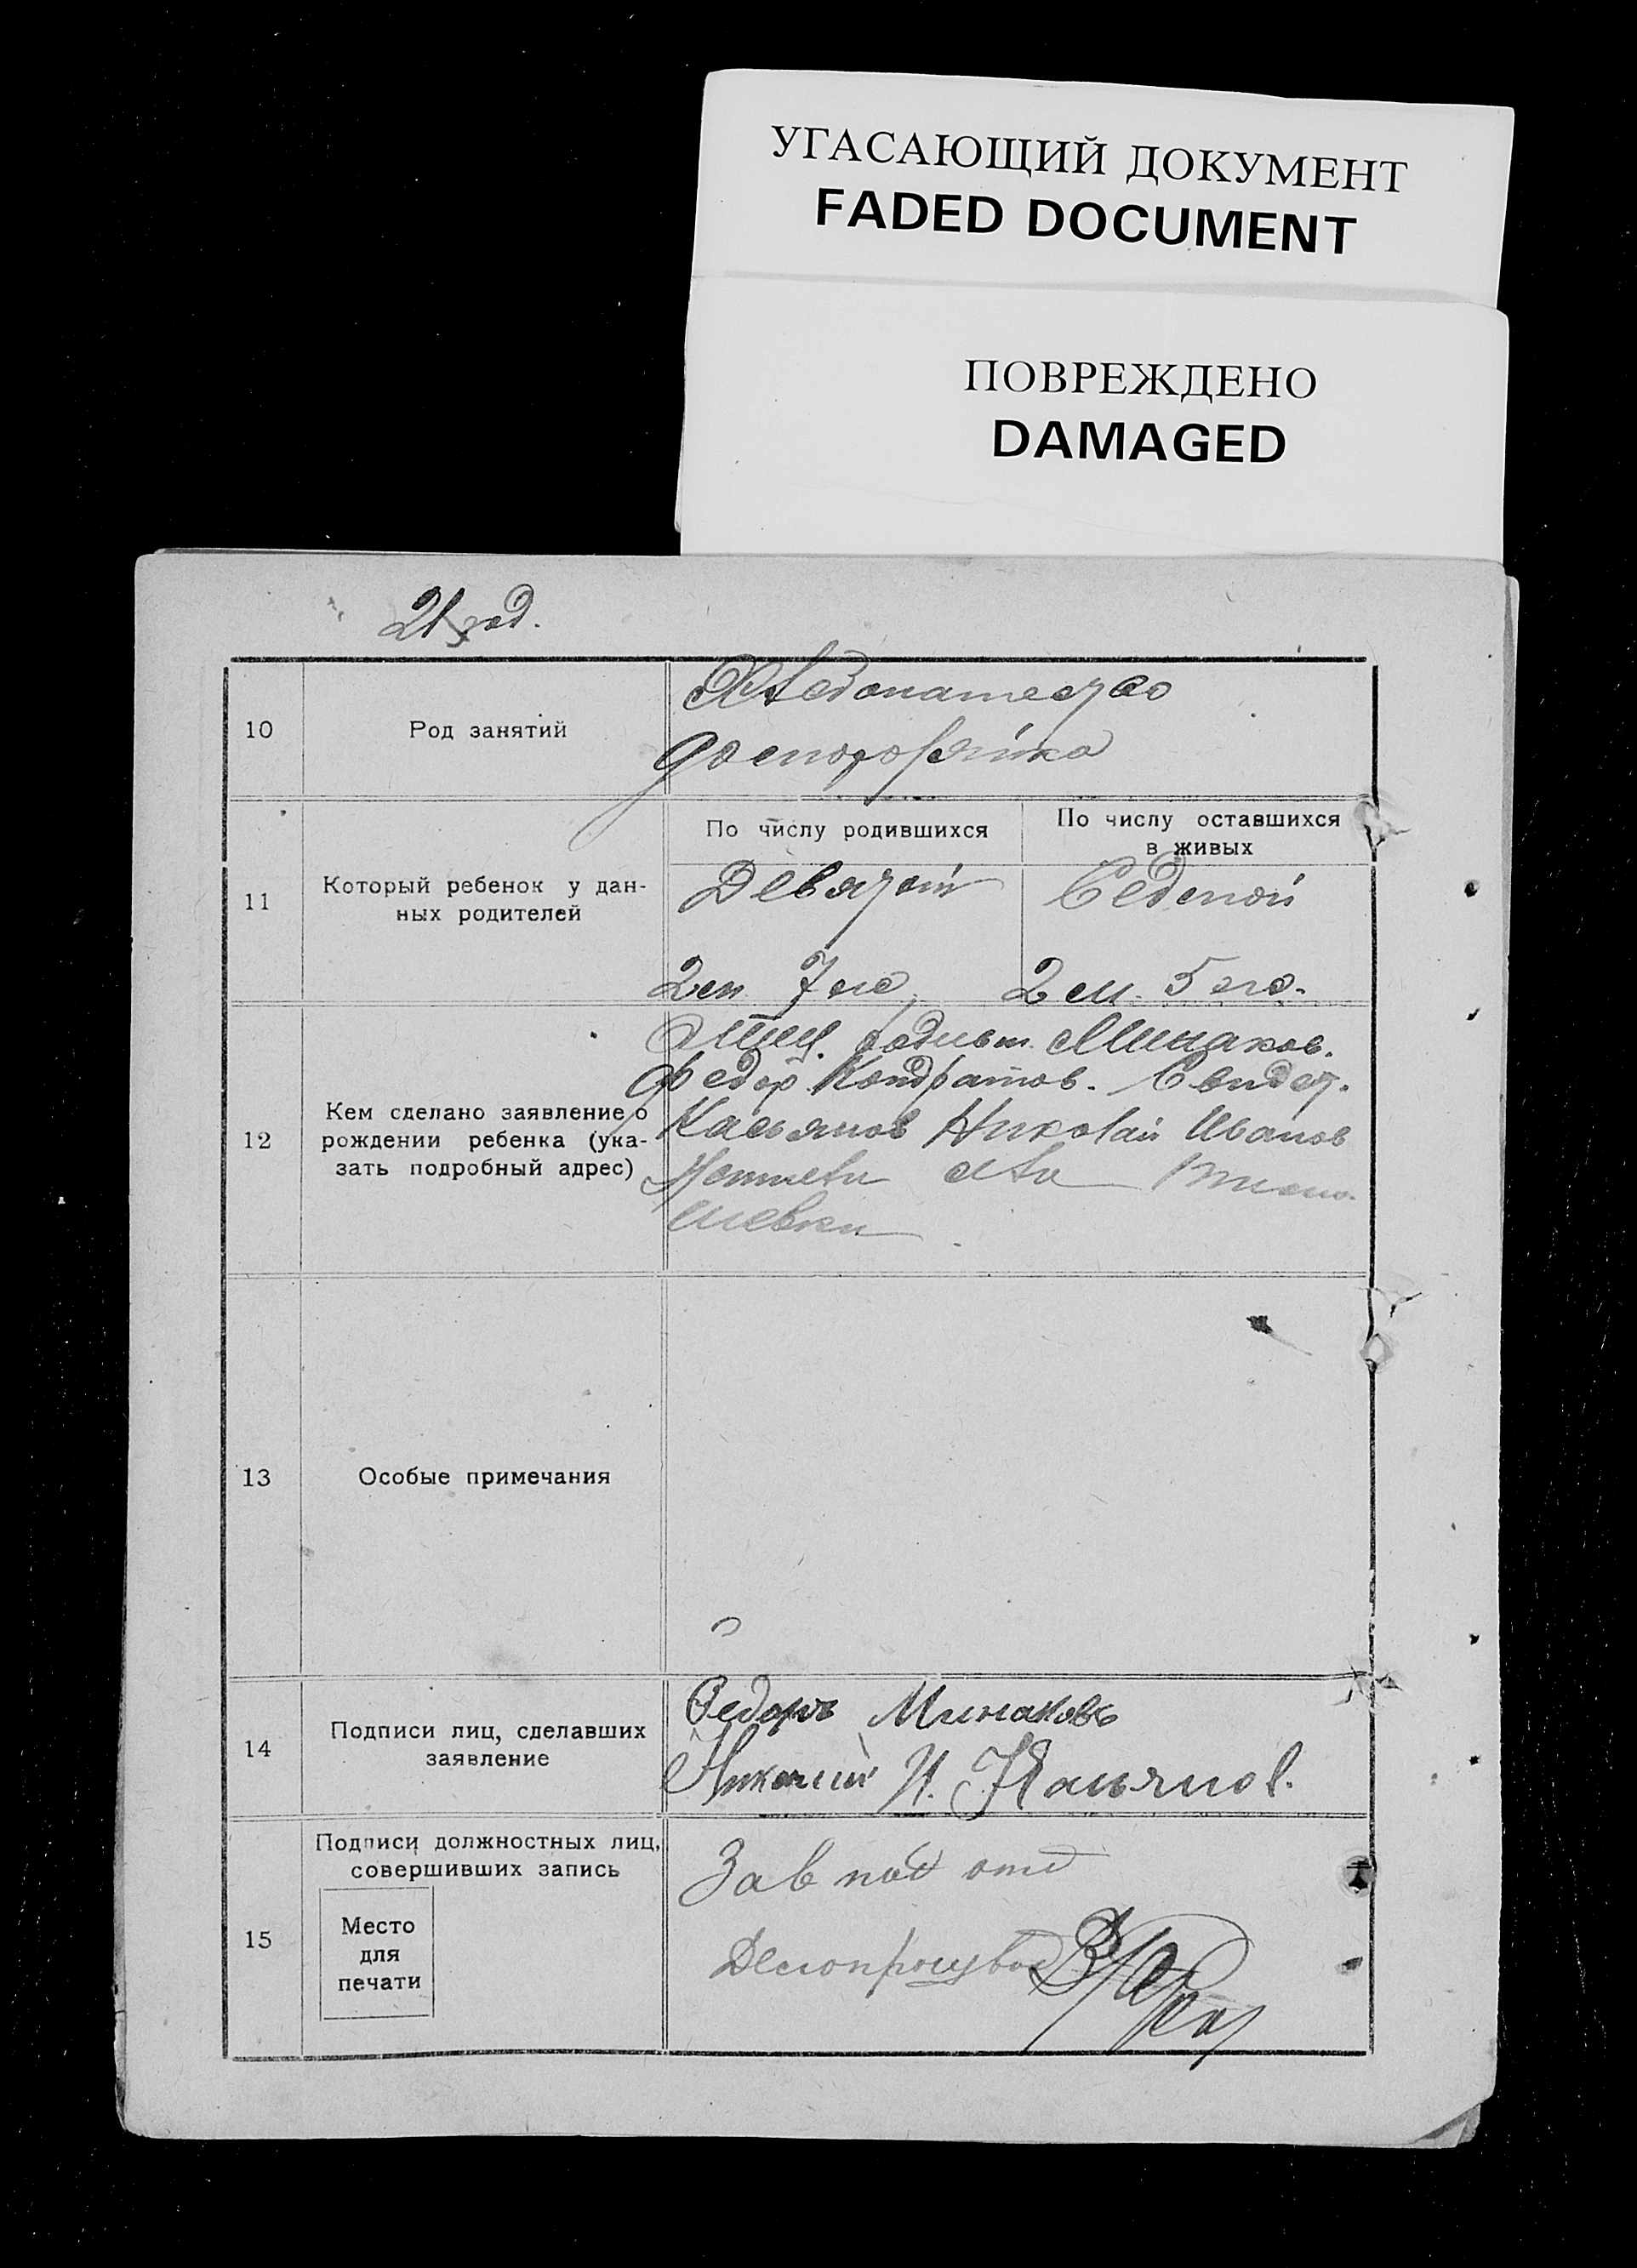 УГАСАЮЩИЙ ДОКУМЕНТ
FADED DOCUMENT
ПОВРЕЖДЕНО
DAMAGED
21 год.
10
Род занятий
Хлебопашество
11
Который ребенок у дан-
ных родителей
По числу родившихся
По числу оставшихся
в живых
Девятой
Седмой
2 м. 7
2 м. 5
12
Кем сделано заявление о
рождении ребенка (ука-
зать подробный адрес)
Отец. Минаков.
Федор Кондратов. Свидет.
Касьянов Николай Иванов
13
Особые примечания
14
Подписи лиц, сделавших
заявление
Федоръ Минаковъ
Николай И. Касьянов.
15
Подписи должностных лиц,
совершивших запись
Место
для
печати
Зав под отд